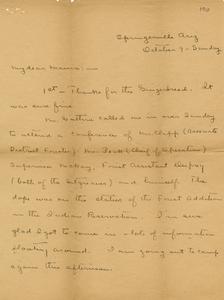 Springerville Ariz
October 9 - Sunday
My dear Mama: -
1st - Thanks for the Gingerbread. It
was sure fine
Mr. Guthrie called me in over Sunday
to attend a conference of Mr. Clapp (Associate
District Forester) Mr. (Chief of Operation)
Supervisor McKay, Forest Assistant
(both of the Sitgreaves) and himself. The
dope was on the status of the Forest Addition
in the Indian Reservation. I'm sure
glad I got to come in - lots of information
floating around. I am going out to camp
again this afternoon.